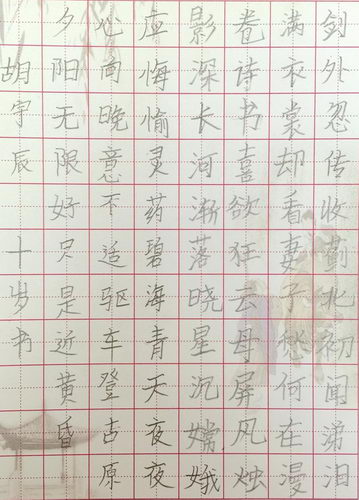 剑外忽传收蓟北初闻涕泪
满衣裳却看妻子愁何在漫
卷诗书喜欲狂云母屏风烛
影深长河渐落晓星沉嫦娥
应悔愉灵药碧海青天夜夜
心向晚意不适驱车登古原
夕阳无限好只是近黄昏
胡宇辰 十岁书